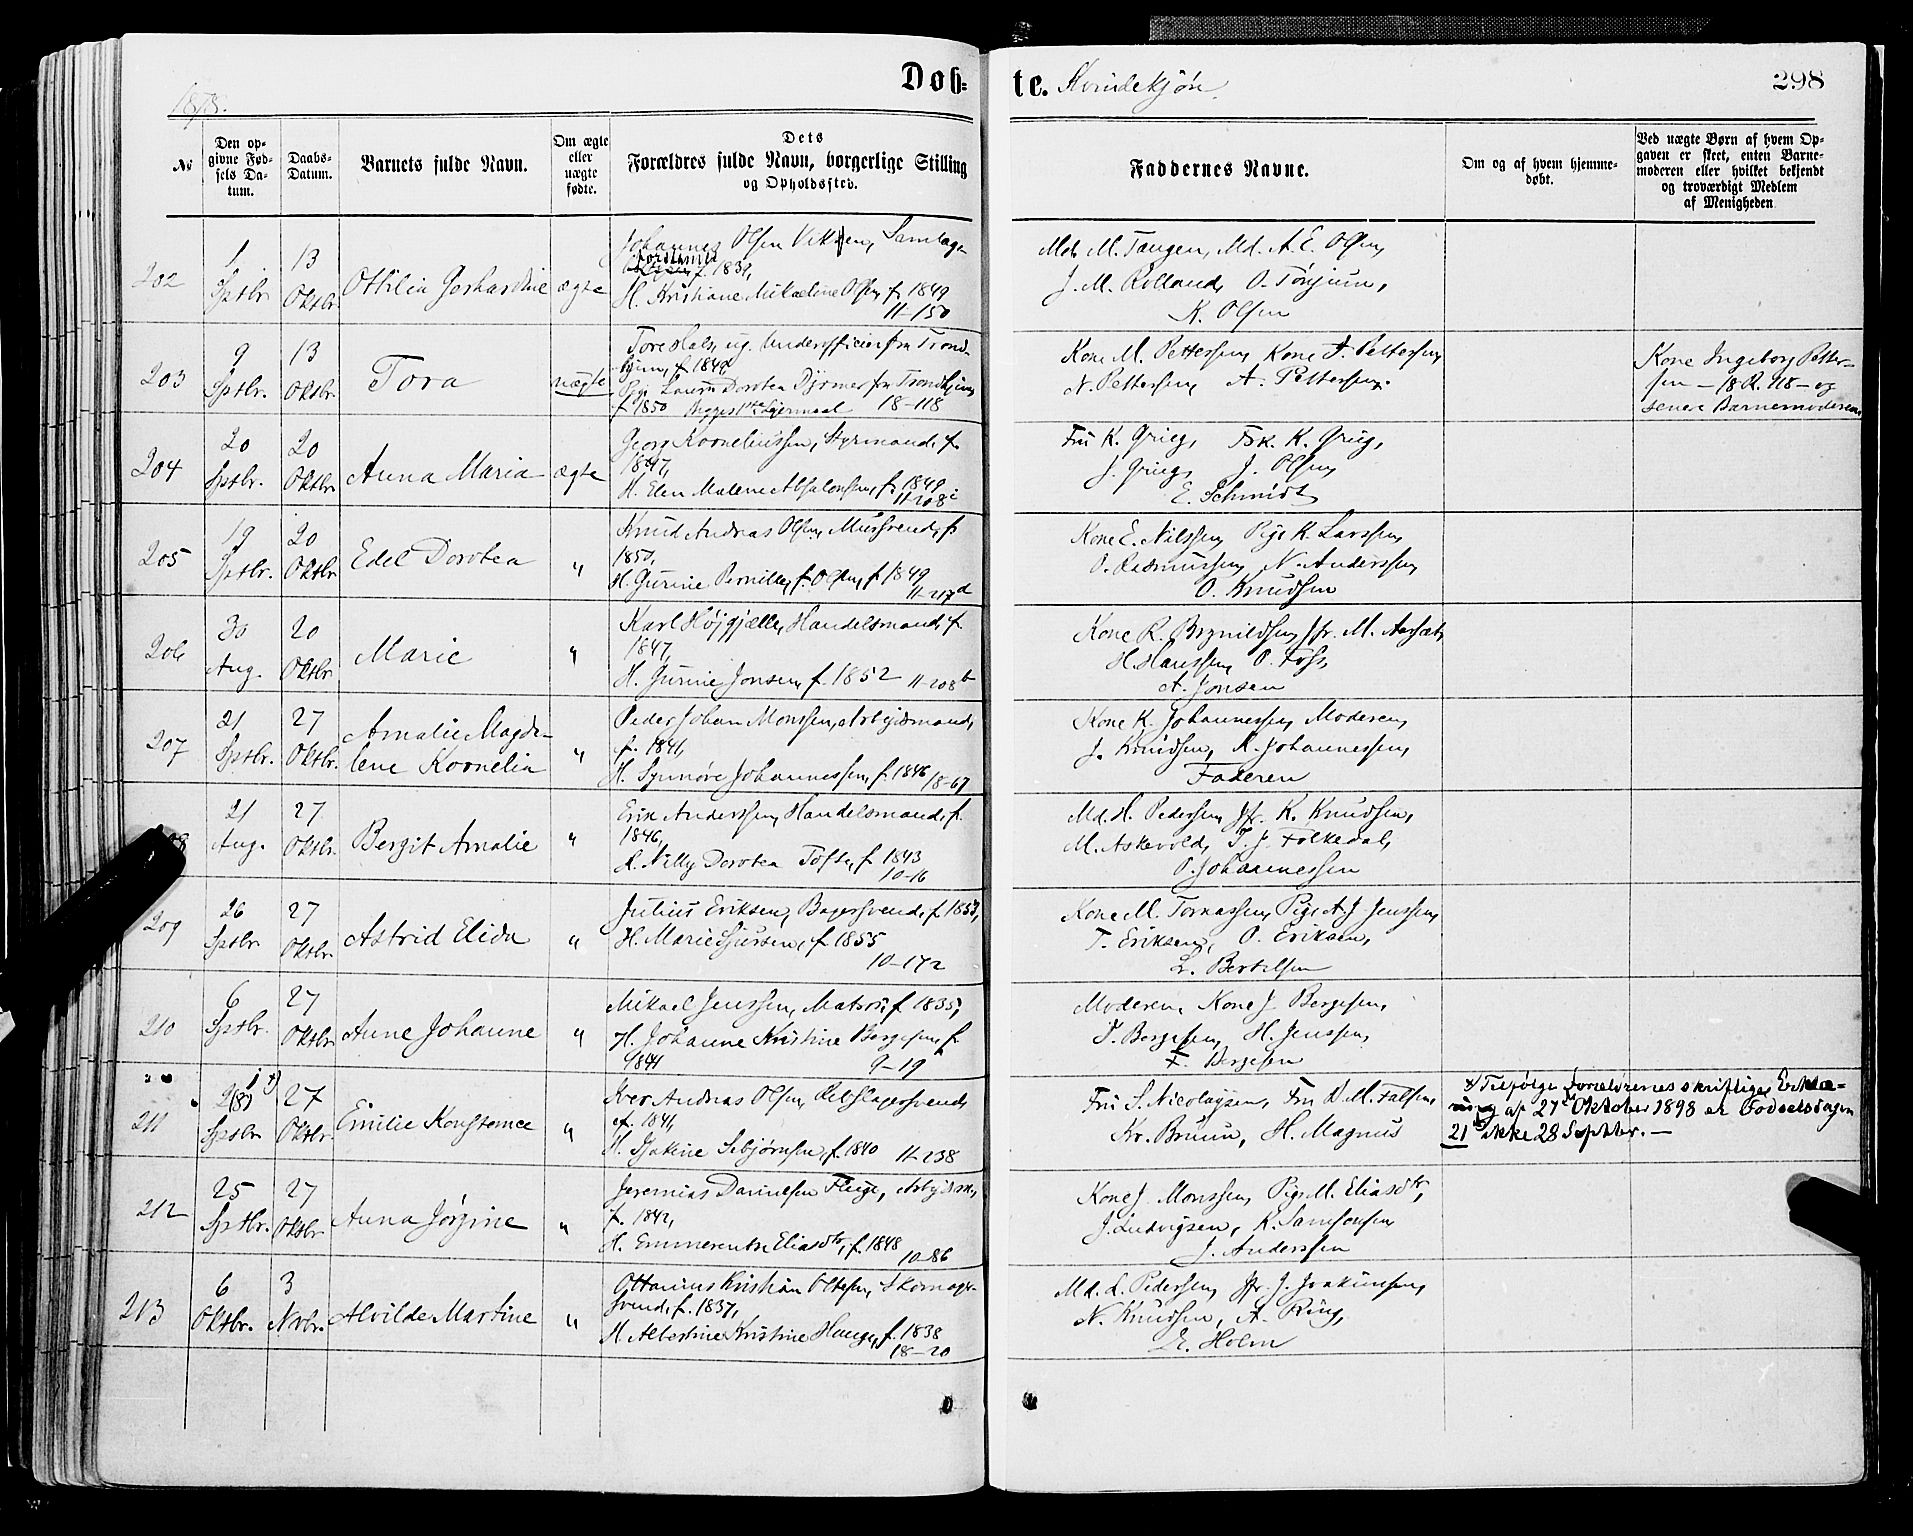 Døb=
te. Kvindekjøn.
298
1878.
№
Den op-
givne Fød-
sels Da-
tum.
Daabs-
Datum.
Barnets fulde Navn.
Om ægte
eller
uægte
fødte.
Dets
Forældres fulde Navn, borgerlige Stilling
og Opholdssted.
Faddernes Navne.
Om og af hvem hjemme-
døbt.
Ved uægte Børn af hvem Op-
gaven er skeet, enten Barne-
moderen eller hvilket bekjendt
og troværdigt Medlem
af Menigheden
202
1
Sptbr.
13
Oktbr
Ottilia Gerhardine
ægte
Johannes Olsen
f. 1831,
H. Kristiane Mikaeline Olsen, f. 1849
11-150
Md. M. Tangen, Md. A. E. Olsen,
J. M. Rolland, O. Tønjum,
K. Olsen
203
9
Sptbr.
13
Oktbr.
Tora
uægte
Tore Hals, ug. Underofficier fra Trond-
hjem, f. 1849
Pige Laura Dorotea Dyrmer fra Trondhjem,
f. 1850 Begges 1ste Leiermaal 18-118
Kone M. Pettersen, Kone J. Pettersen,
N. Pettersen, A. Pettersen.
Kone Ingeborg Petter-
sen - 18 R. 118 - og
senere Barnemoderen
204
20
Sptbr.
20
Oktbr
Anna Maria
ægte
Georg Korneliussen, Styrmand, f.
1847,
H. Elen Malene Absalonsen, f. 1849
11-208 c
Fru K. Grieg, Frk. K. Grieg,
J. Grieg, J. Olsen,
E. Schmidt
205
19
Sptbr.
20
Oktbr
Edel Dorotea
"
Knud Andreas Olsen, Mursvend, f.
1850,
H. Gurine Pernille, f. Olsen, f. 1849
11-217 d
Kone E. Nilssen, Pige K. Larssen,
O. Rasmussen, N. Anderssen,
O. Knudsen
206
30
Aug.
20
Oktbr.
Marie
"
Karl Højgjælle, Handelsmand, f.
1847,
H. Gurine Jonsen, f. 1852 11-208 b
Kone R. Brynildsen, Jfr. M. Aarsæt,
H. Hanssen, O. Foss,
A. Jonsen
207
21
Sptbr.
27
Oktbr.
Amalie Magda-
lene Kornelia
"
Peder Johan Monssen, Arbeidsmand,
f. 1841,
H. Synnøve Johannessen, f. 1846 18-67
Kone K. Johannessen, Moderen,
J. Knudsen, K. Johannessen,
Faderen
21
Aug.
27
Oktbr.
Bergit Amalie
"
Erik Anderssen, Handelsmand, f.
1846,
H. Nilly Dorotea Toft, f. 1843
10-16
Md. H. Pedersen, Jfr. K. Knudsen,
M. Askevold, T. J. Folkedal,
O. Johannessen
209
26
Sptbr
27
Oktbr.
Astrid Elida
"
Julius Eriksen, Bagersvend, f. 1853,
H. Marie Sjursen, f. 1855
10-172
Kone M. Tomassen, Pige A. J. Jenssen,
T. Eriksen, O. Eriksen,
L. Bertelsen
210
6
Sptbr.
27
Oktbr
Anne Johanne
"
Mikael Jenssen, Matros, f. 1835,
H. Johanne Kristine Bergesen, f.
1841 9-19
Moderen, Kone J. Bergesen,
T. Bergesen, H. Jenssen,
F. Bergesen
211
2(8)1 x)
Sptbr
27
Oktbr.
Emilie Konstance
"
Iver Andreas Olsen, Rebslagersvend,
f. 1841,
H. Sjakine Sebjørnsen, f. 1840 11-238
Fru S. Nicolaysen, Fru D. M. Falsen,
Kr. Bruun, H. Magnus
x) Tilfølge Forældrenes skriftlige Erklæ-
ring af 27de Oktober 1898 er Fødselsdagen
21 ikke 28 Septbr. -
212
25
Sptbr.
27
Oktbr
Anna Jørgine
"
Jeremias Danielsen Fluge, Arbeidsm,
f. 1842,
H. Emmerentse Eliasdtr, f. 1848
10-86
Kone J. Monssen, Pige M. Eliasdtr,
J. Ludvigsen, K. Samsonsen
J. Anderssen
213
6
Oktbr.
3
Nvbr.
Alvilde Martine
"
Ottanius Kristian Oltesen, Skomager-
svend, f. 1837,
H. Albertine Kristine Hauge, f. 1838
18-20
Md. L. Pedersen, Jfr. J. Joakimsen,
N. Knudsen, A. Ring,
E. Holm